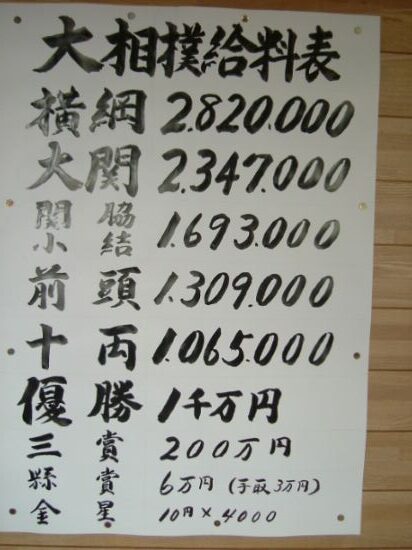 大相撲給料表
横綱 2.820.000
大関 2.347.000
関脇 小結 1.693.000
前頭 1.309.000
十両 1.065.000
優勝 1千万円
三賞 200万円
懸賞 6万円（手取3万円）
金星 10円×4000